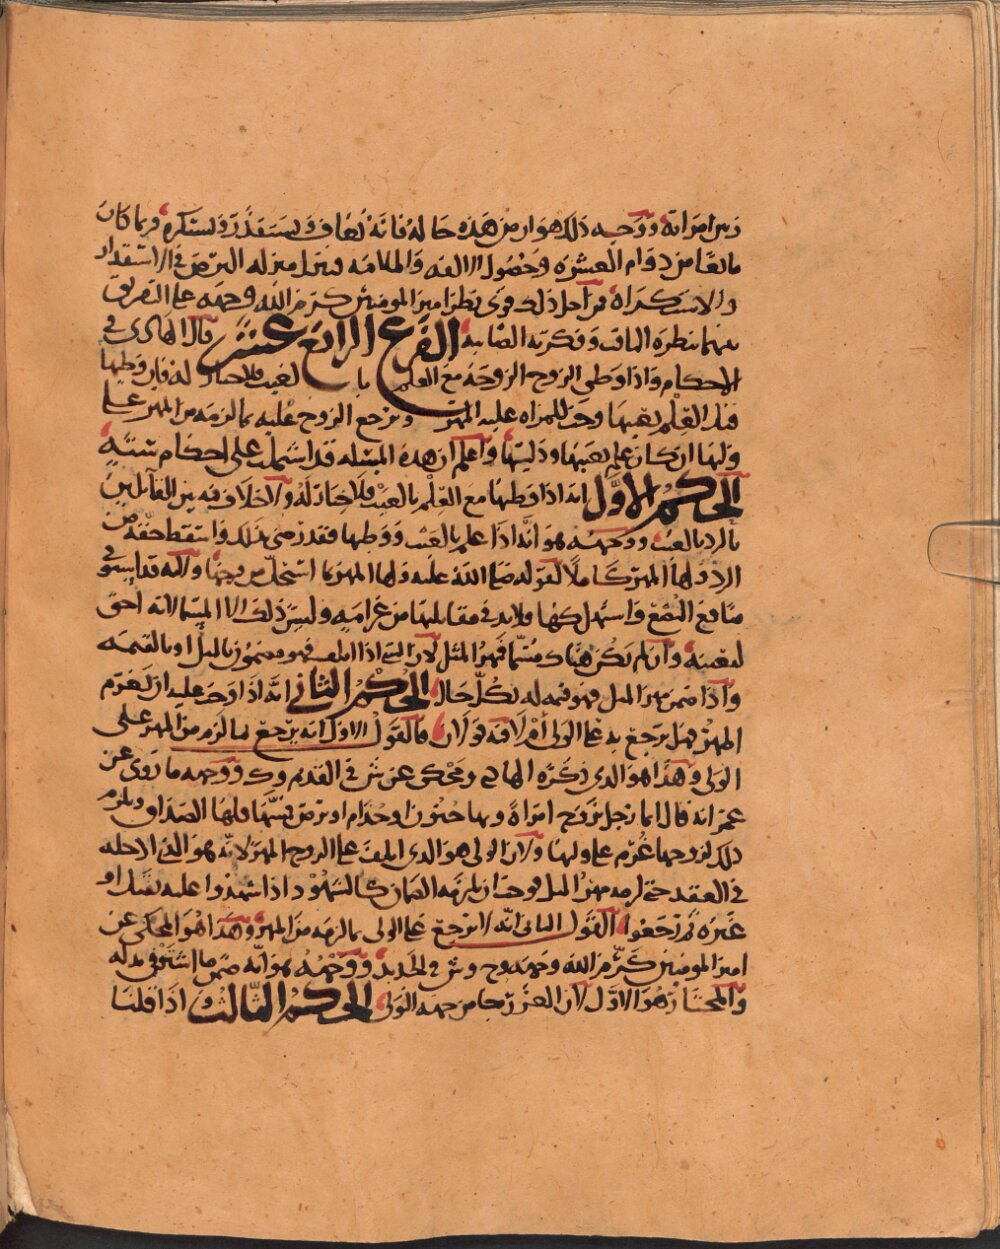 وبين امراته ووجه ذلك هو ان من هذه حاله فانه يعاف ويستقذر ويستكره فربما كان
مانعا من دوام العشرة وحصول الالفه والملامه فينزل منزله البرص في الاستقذار
والاستكراه فمن اجل ذلك قوى نظر امير المومنين كرم الله وجهه على التفريق
بينهما بنظره الثاقب وفكرته الصايبه الفرع الرابع عشر قال الهادى في
الاحكام واذا وطى الزوج الزوجة مع العلم بالعيب فلا خيار له فان وطيها
قبل العلم بعيبها وجب للمراه عليه المهر ويرجع الزوج عليه بما لزمه من المهر على
وليها ان كان علم بعيبها ودلسها واعلم ان هذه المسئله قد اشتملت على احكام ستة
الحكم الاول انه اذا وطيها مع العلم بالعيب فلا خيار له ولا خلاف فيه بين القايلين
بالرد بالعيب ووجهه هو انه اذا علم بالعيب ووطيها فقد رضى بذلك واسقط حقه من
الرد ولها المهر كاملا لقوله صلى الله عليه ولها المهر بما استحل من فرجها ولانه قد استوفى
منافع البضع واستهلكها ولابد في مقابلتها من غرامه وليس ذلك الا المسما لانه احق
لتعينه وان لم يكن هناك مسما فمهر المثل لان الشي اذا اتلف فهو مضمون بالمثل او بالقيمه
واذا ضمن مهر المثل فهو قيمه له بكل حال الحكم الثاني انه اذا وجب عليه ان يغرم
المهر فهل يرجع به على الولي ام لا فيه قولان فالقول الاول انه يرجع بما لزم من المهر على
الولي وهذا هو الذى ذكره الهادي ومحكى عن ش في القديم وك ووجهه ما روى عن
عمر انه قال ايما رجل تزوج امراة وبها جنون او جذام او برص فمسها فلها الصداق ويلزم
ذلك لزوجها غرم على وليها ولان الولي هو الذى اتلف على الزوج المهر لانه هو الذي ادخله
في العقد حتى لزمه مهر المثل فوجب ان يلزمه الضمان كالشهود اذا شهدوا عليه بقتل او
غيره ثم رجعوا القول الثاني انه لا يرجع على الولي بما لزمه من المهر وهذا هو المحكى عن
امير المومنين كرم الله وجهه وح وش في الجديد ووجهه هو انه ضمن ما استوفى بدله
والمختار هو الاول لان الغرر جا من جهه الولي الحكم الثالث اذا قلنا